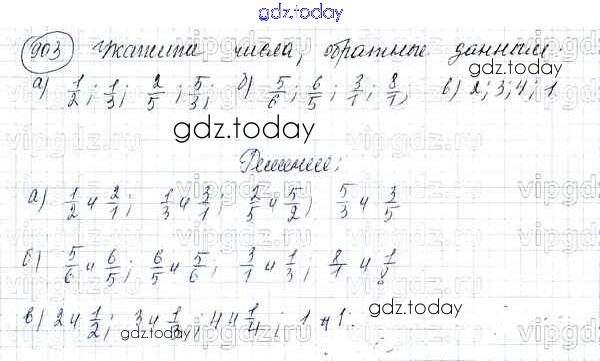 gdz.today
903 Укажите числа, обратные данным:
а) 1/2; 1/3; 2/5; 5/3; б) 5/6; 6/5; 3/1; 8/1; в) 2; 3; 4; 1
gdz.today
gdz.today
Решение:
а) 1/2 и 2/1; 1/3 и 3/1; 2/5 и 5/2; 5/3 и 3/5
б) 5/6 и 6/5; 6/5 и 5/6; 3/1 и 1/3; 8/1 и 1/8
в) 2 и 1/2; 3 и 1/3; 4 и 1/4; 1 и 1.
gdz.today